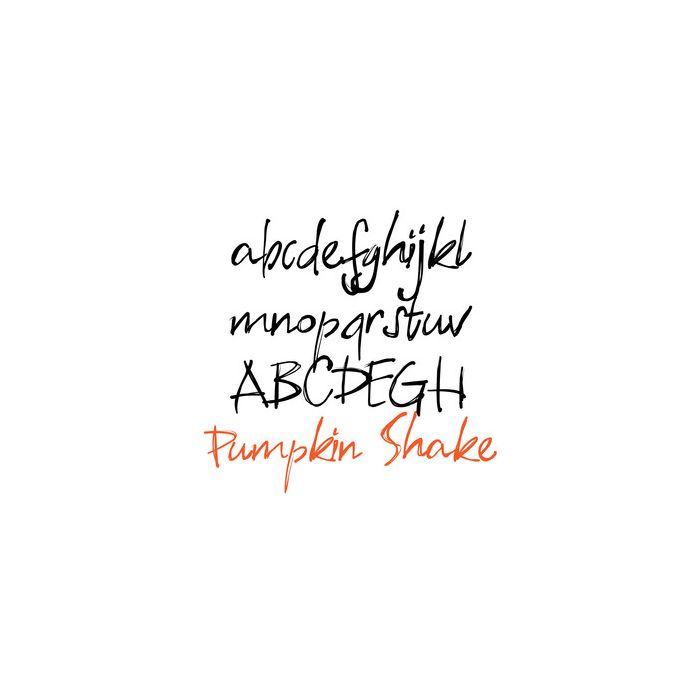 abcdefghijkl
mnopqrstuv
ABCDEGH
Pumpkin Shake